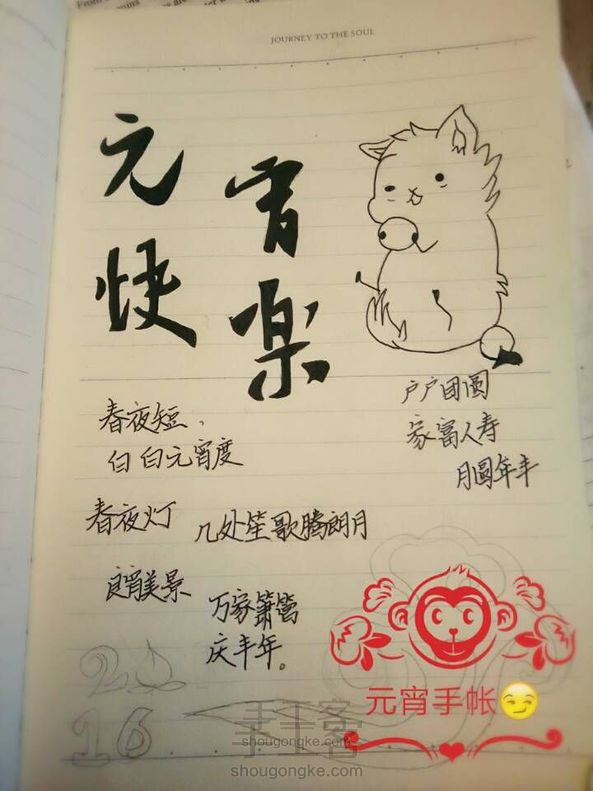 JOURNEY TO THE SOUL
元宵
快樂
春夜短，
白白元宵度
春夜灯
几处笙歌腾朗月
良宵美景
万家箫管
庆丰年。
户户团圆
家富人寿
月圆年丰
2016
元宵手帐😏
手工客
shougongke.com
shougongke.com